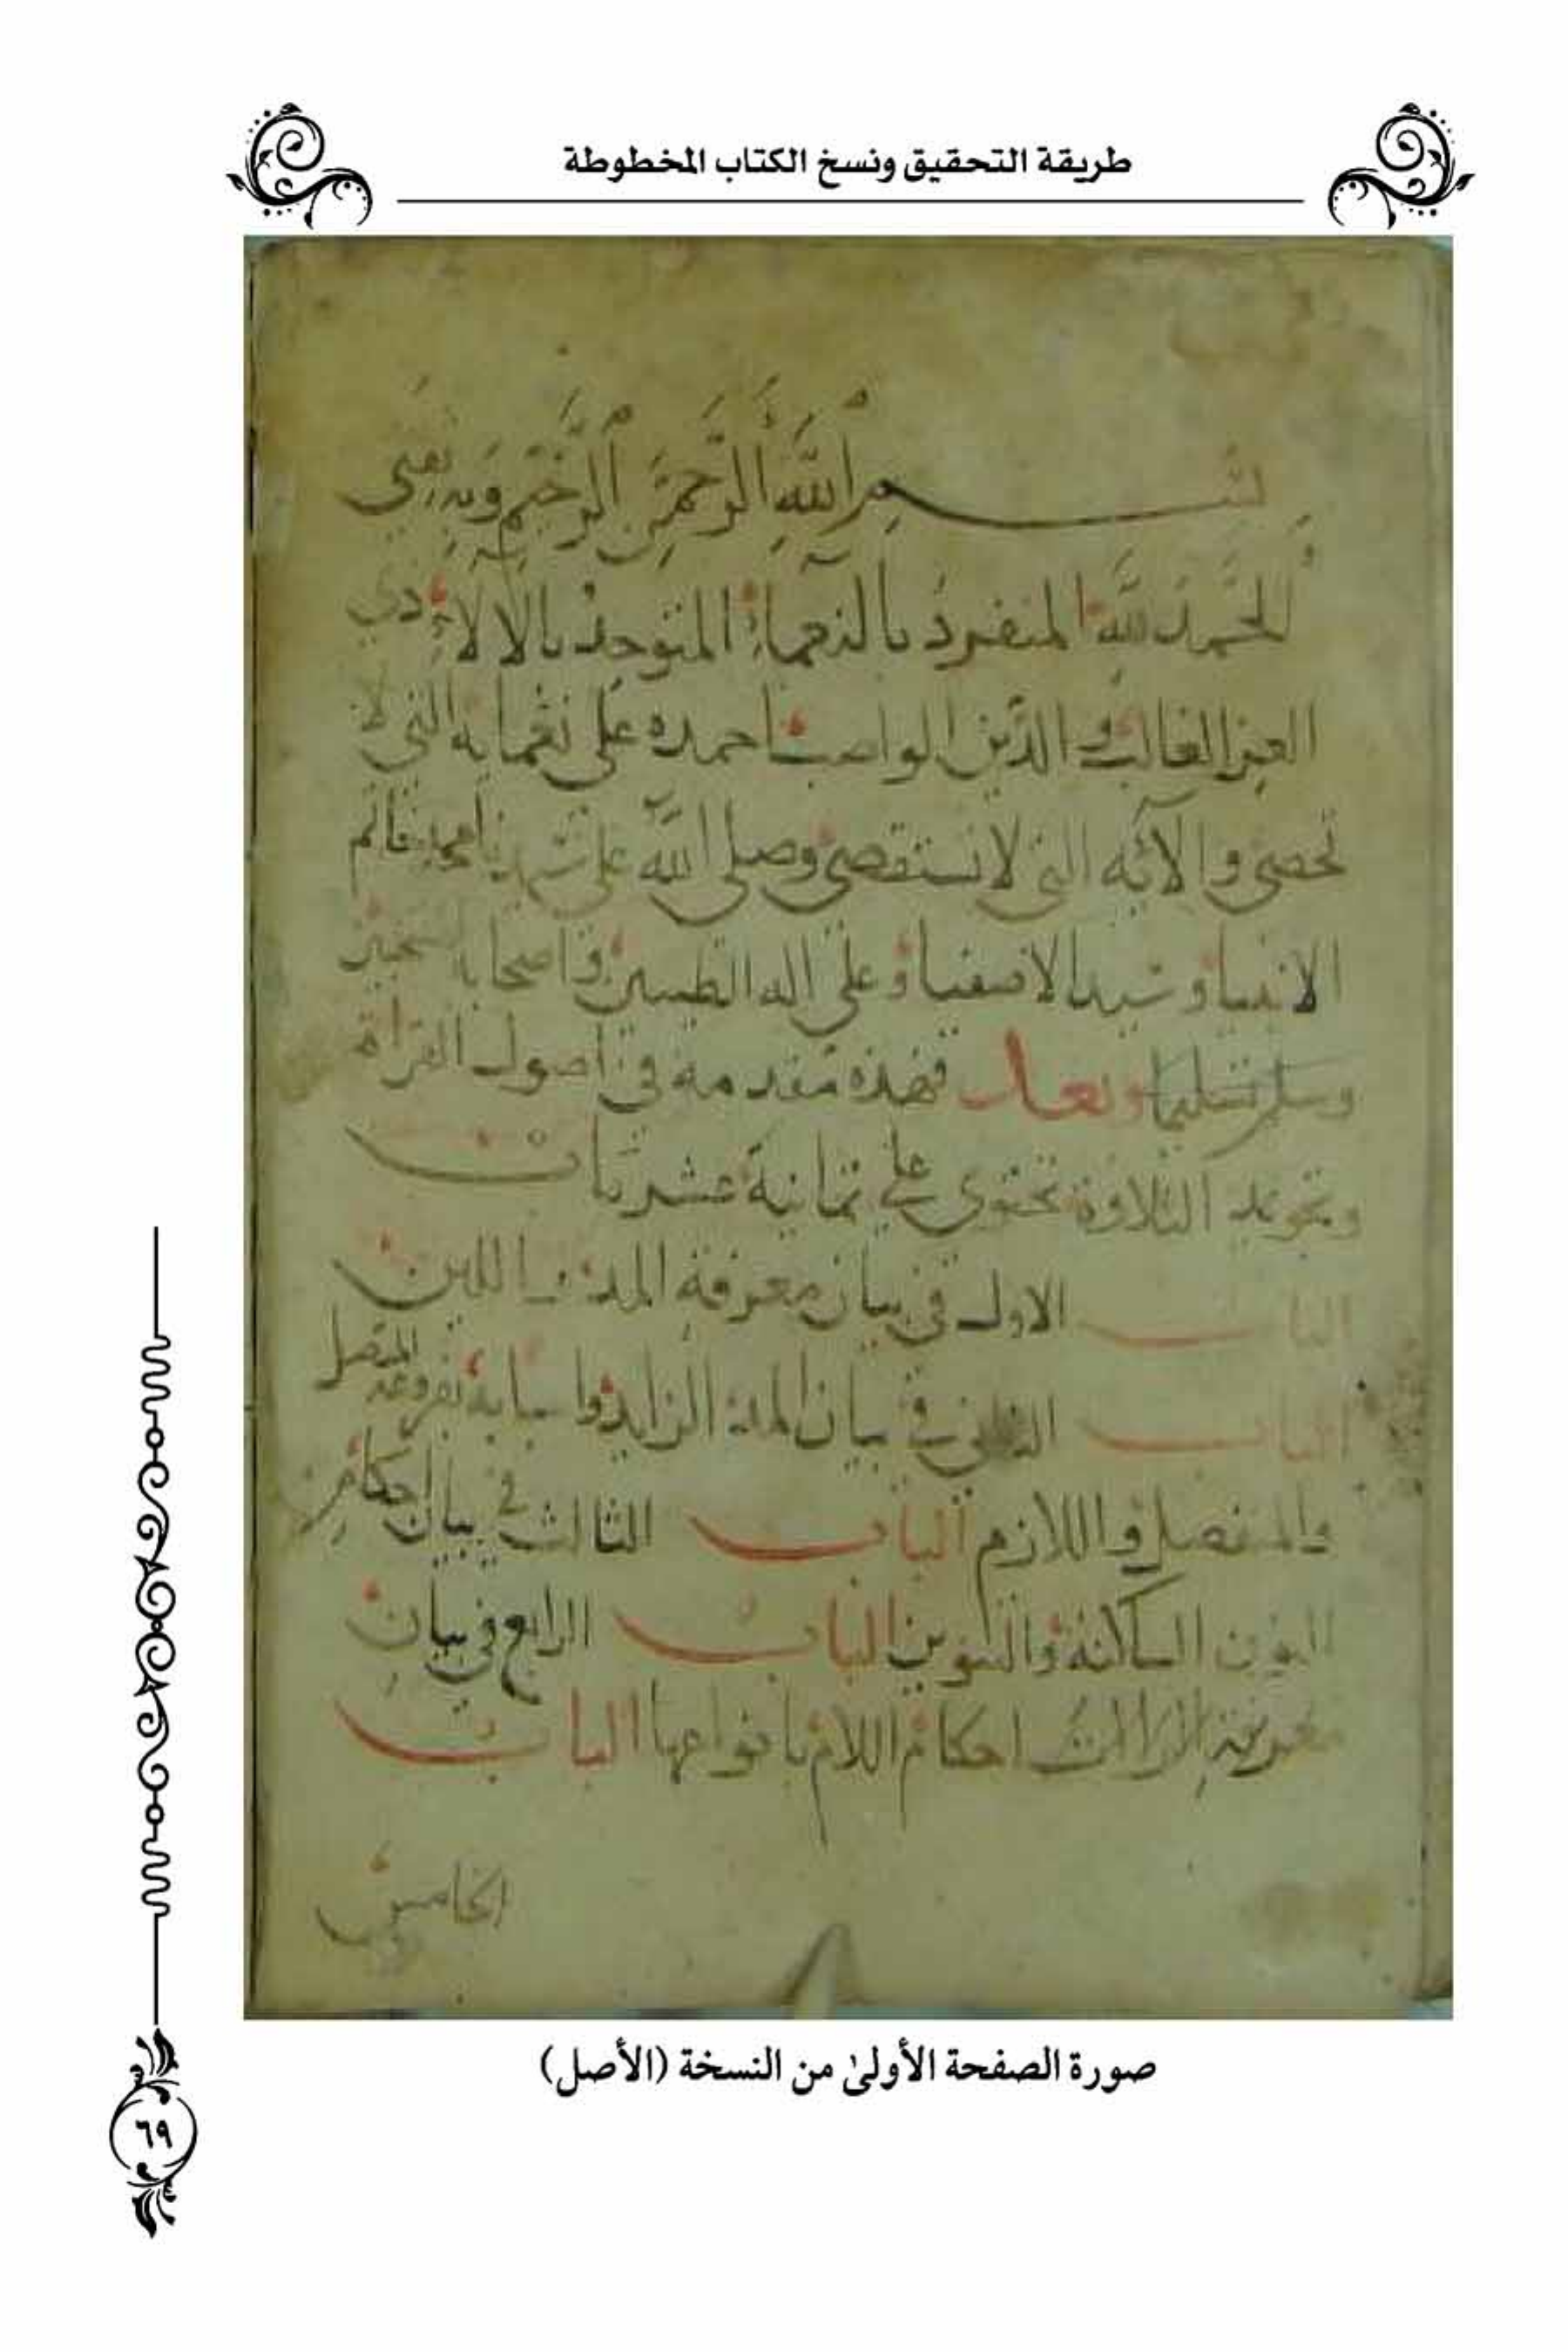 طريقة التحقيق ونسخ الكتاب المخطوطة
بسم الله الرحمن الرحيم وبه ثقتي
الحمد لله المنفرد بالنعماء المتوحد بالالاء ذي
العز الغالب والدين الواصب احمده على نعمايه التي لا
تحصى والآئه التي لا تستقصى وصلى الله على سيدنا محمد خاتم
الانبيا وسيد الاصفيا وعلى اله الطيبين واصحابه
وسلم تسليما وبعد فهذه مقدمة في اصول القراة
وتجويد التلاوة تحتوي على ثمانية عشر باب
الباب الاول في بيان معرفة المد واللين
الباب الثاني في بيان المد الزايد واسبابه المتصل
والمنفصل واللازم الباب الثالث في بيان احكام
النون الساكنة والتنوين الباب الرابع في بيان
احكام اللام بانواعها الباب
الخامس
صورة الصفحة الأولىٰ من النسخة (الأصل)
٦٩